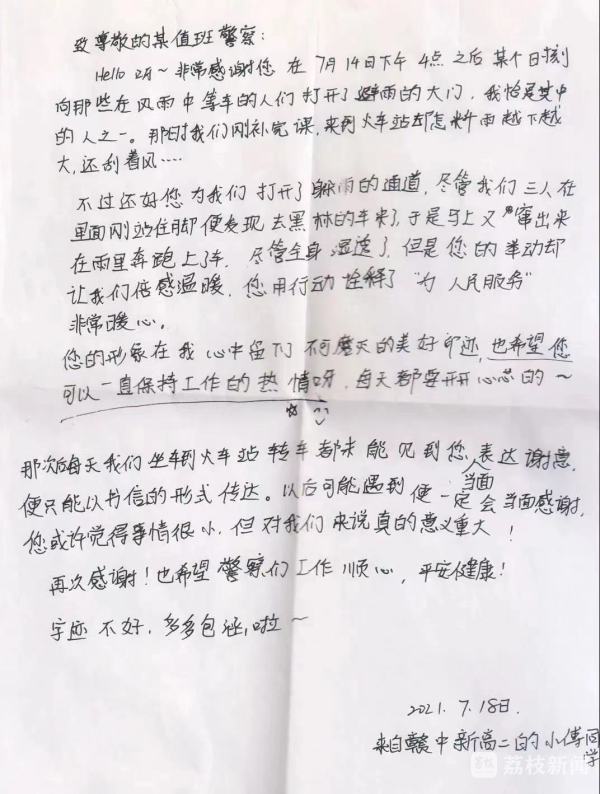 致尊敬的某值班警察:
Hello 呀~非常感谢您在7月14日下午4点之后某个时刻
向那些在风雨中等车的人们打开了避雨的大门,我恰是其中
的人之一。那时我们刚补完课,来到火车站却怎料雨越下越
大,还刮着风....
不过还好您为我们打开了躲雨的通道,尽管我们三人在
里面刚站住脚便发现去黑林的车来了,于是马上又“窜出来
在雨里奔跑上了车.尽管全身湿透了,但是您的举动却
让我们倍感温暖,您用行动诠释了“为人民服务”
非常暖心。
您的形象在我心中留下了不可磨灭的美好印迹,也希望您
可以一直保持工作的热情呀,每天都要开开心心的~
那次后每天我们坐车到火车站转车都未能见到您人表达谢意,
便只能以书信的形式传达。以后可能遇到便一定会当面感谢,
当面
您或许觉得事情很小,但对我们来说真的意义重大!
再次感谢!也希望警察们工作顺心,平安健康!
字迹不好,多多包涵,啦~
2021.7.18日.
来自赣中新高二的小傅同学
荔枝新闻